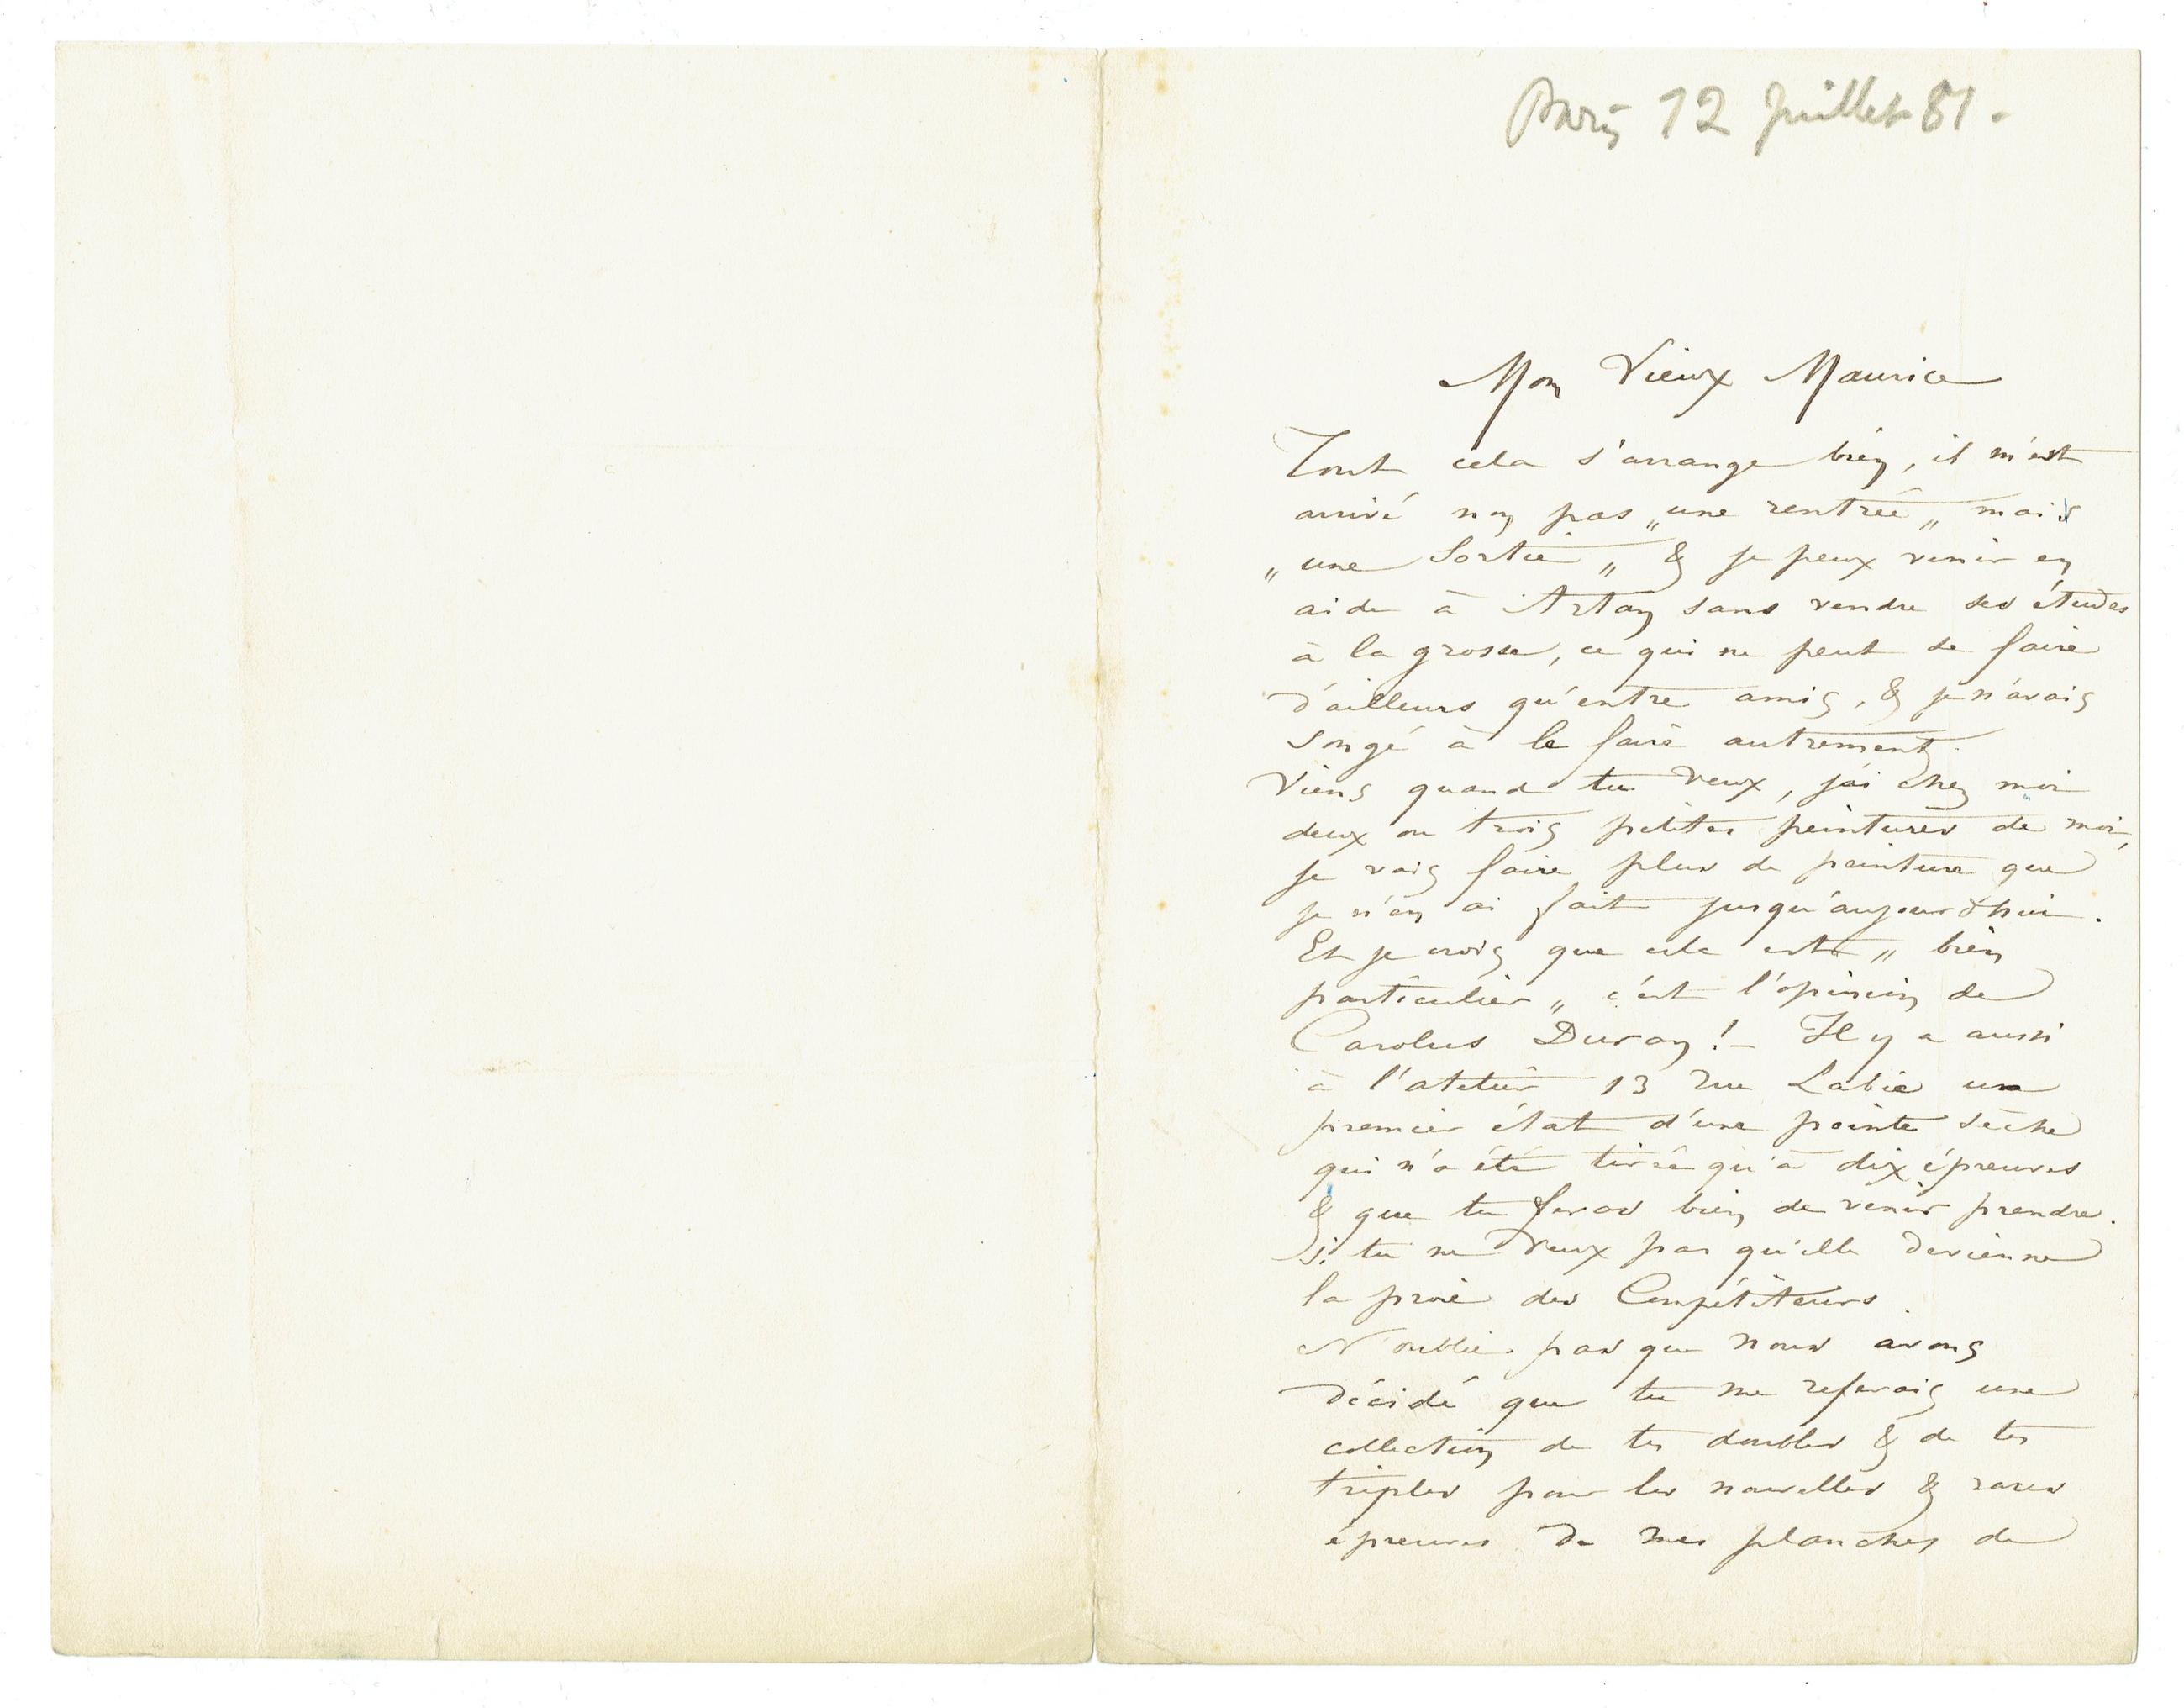 Paris 12 Juillet 81.
Mon Vieux Maurice
Tout cela s'arrange bien, il m'est
arrivé non pas „une rentrée„ mais
„une Sortie„ & je peux venir en
aide à Artan sans vendre ses études
à la grosse, ce qui ne peut se faire
d'ailleurs qu'entre amis, & je n'avais
songé à le faire autrement.
Viens quand tu veux, j'ai chez moi
deux ou trois petites peintures de moi,
je vais faire plus de peinture que
je n'en ai fait jusqu'aujourd'hui.
Et je crois que cela est „ bien
particulier „ c'est l'opinion de
Carolus Duran ! – Il y a aussi
à l'atelier 13 rue Labie un
premier état d'une pointe sèche
qui n'a été tirée qu'à dix épreuves
& que tu feras bien de venir prendre.
si tu ne veux pas qu'elle devienne
la proie des Compétiteurs.
N'oublie pas que nous avons
décidé que tu me referais une
collection de tes doubles & de tes
triples pour les nouvelles & rares
épreuves de mes planches de